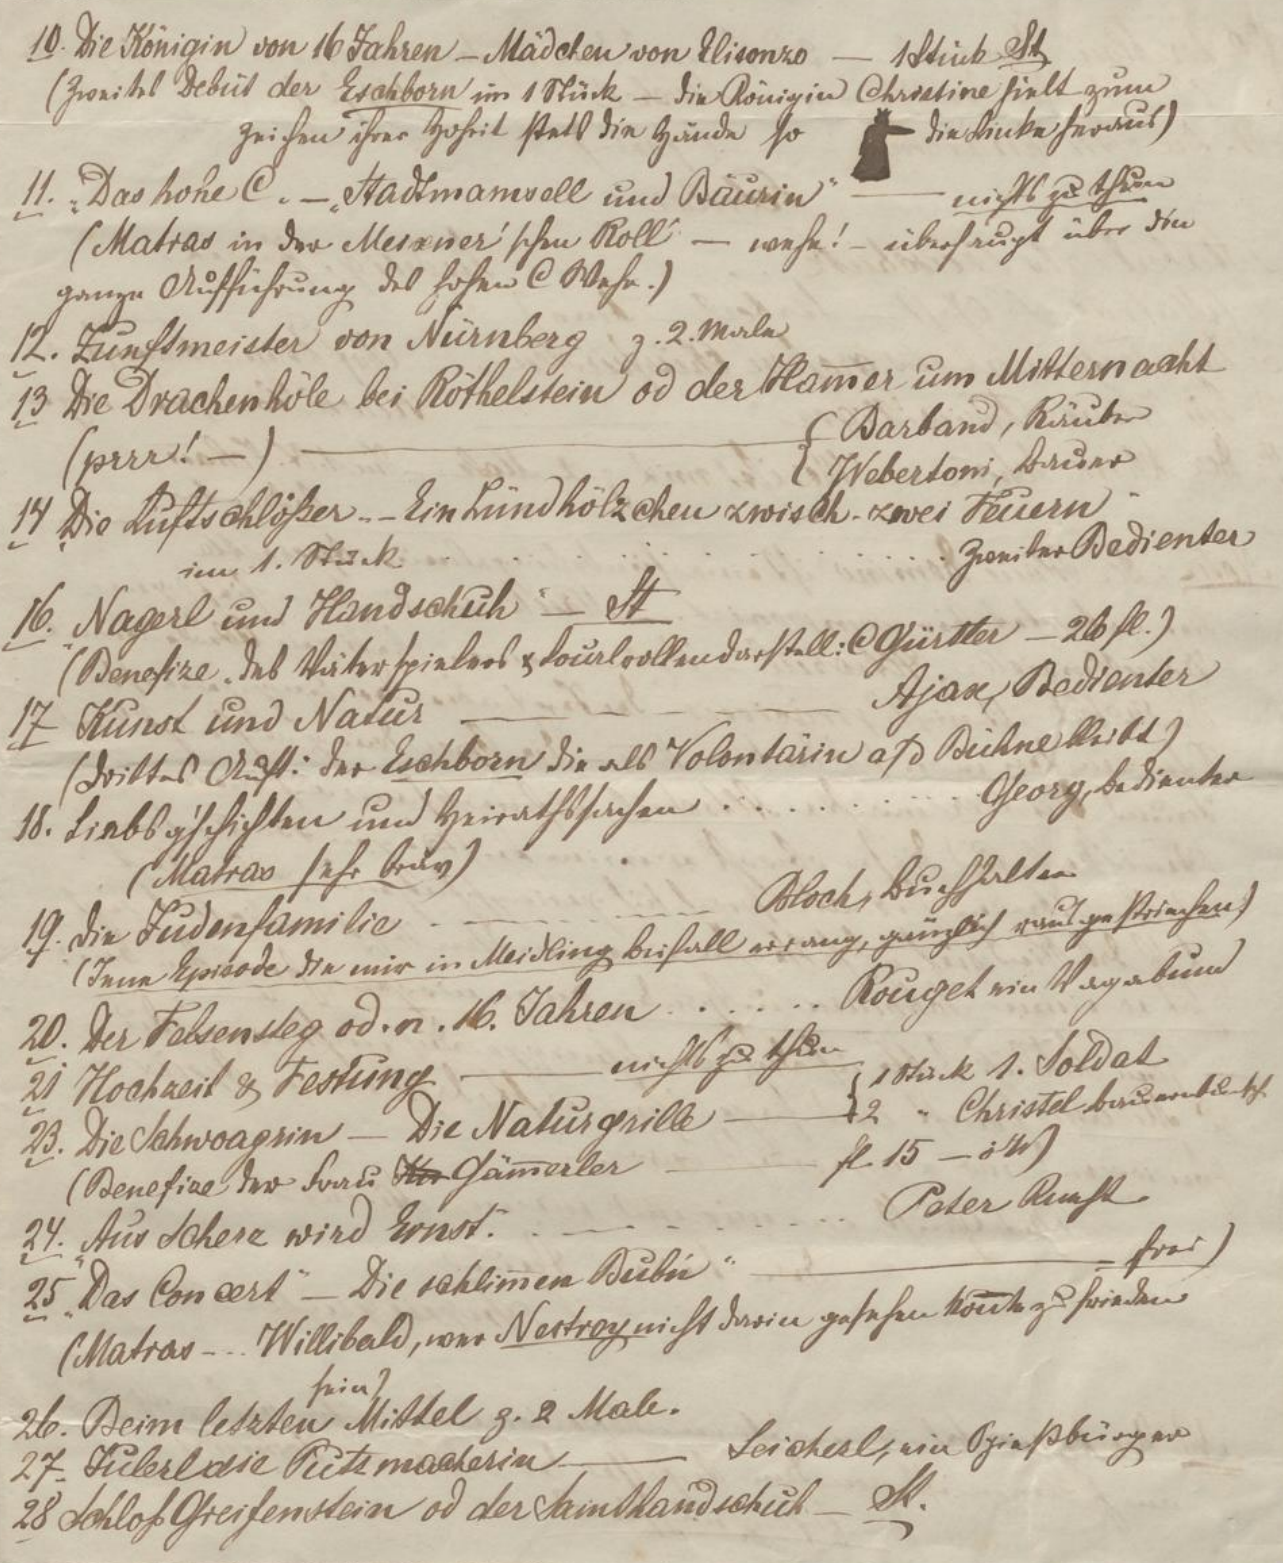 10. Die Königin von 16 Jahren – Mädchen von Elisonzo — 1 Stück St
(Zweites Debüt der Eschborn im 1 Stück — die Königin Christine hielt zum
Zeichen ihrer Hoheit stets die Hände so die Linke heraus)
11. „Das hohe C. – „Stadtmamsell und Bäurin" — nichts zu thun
(Matras in der Meixner'schen Roll — wehe! – überhaupt über die
ganze Aufführung des hohen C Wehe.)
12. Zunftmeister von Nürnberg z. 2. Male
13 Die Drachenhöle bei Röthelstein od der Ham̅er um Mitternacht
(prrr! —) — { Barband, Räuber
Webertoni, Bauer
14 Die Luftschlößer – „Ein Zündhölzchen zwisch. zwei Feuern"
im 1. Stück . . . . . . . . . . Zweiter Bedienter
16. „Nagerl und Handschuh" — St
(Benefize des Väterspielers & Localrollendarstell: C Gürtler — 26 fl.)
17 Kunst und Natur — — — — Ajax, Bedienter
(drittes Auft: der Eschborn die als Volontärin a/d Bühne bleibt)
18. Liebsg'schichten und Heirathssachen . . . . . . . . . . Georg, Bedienter
(Matras sehr brav)
19. Die Judenfamilie — — — — Bloch, Buchhalter
(Jene Episode die mir in Meidling Beifall errang, gänzlich rausgestrichen)
20. Der Felsensteg od. n. 16. Jahren . . . . . . Rouget ein Vagabund
21 Hochzeit & Festung — nichts zu thun
23. Die Schwoagrin — Die Naturgrille — { 1 Stück 1. Soldat
2 " Christel Bauernbursch
(Benefize der Frau Gäm̅erler — fl 15 — öW)
24. „Aus Scherz wird Ernst." . . — — . . . . . Peter Rumpf
25 „Das Concert" — Die schlim̅en Bub'n" — frei)
(Matras – .. Willibald, wer Nestroy nicht darin gesehen kon̅te zufrieden
sein)
26. Beim letzten Mittel z. 2 Male.
27. Julerl die Putzmacherin — Leicherl, ein Spießbürger
28 Schloß Greifenstein od der Samthandschuh — St.